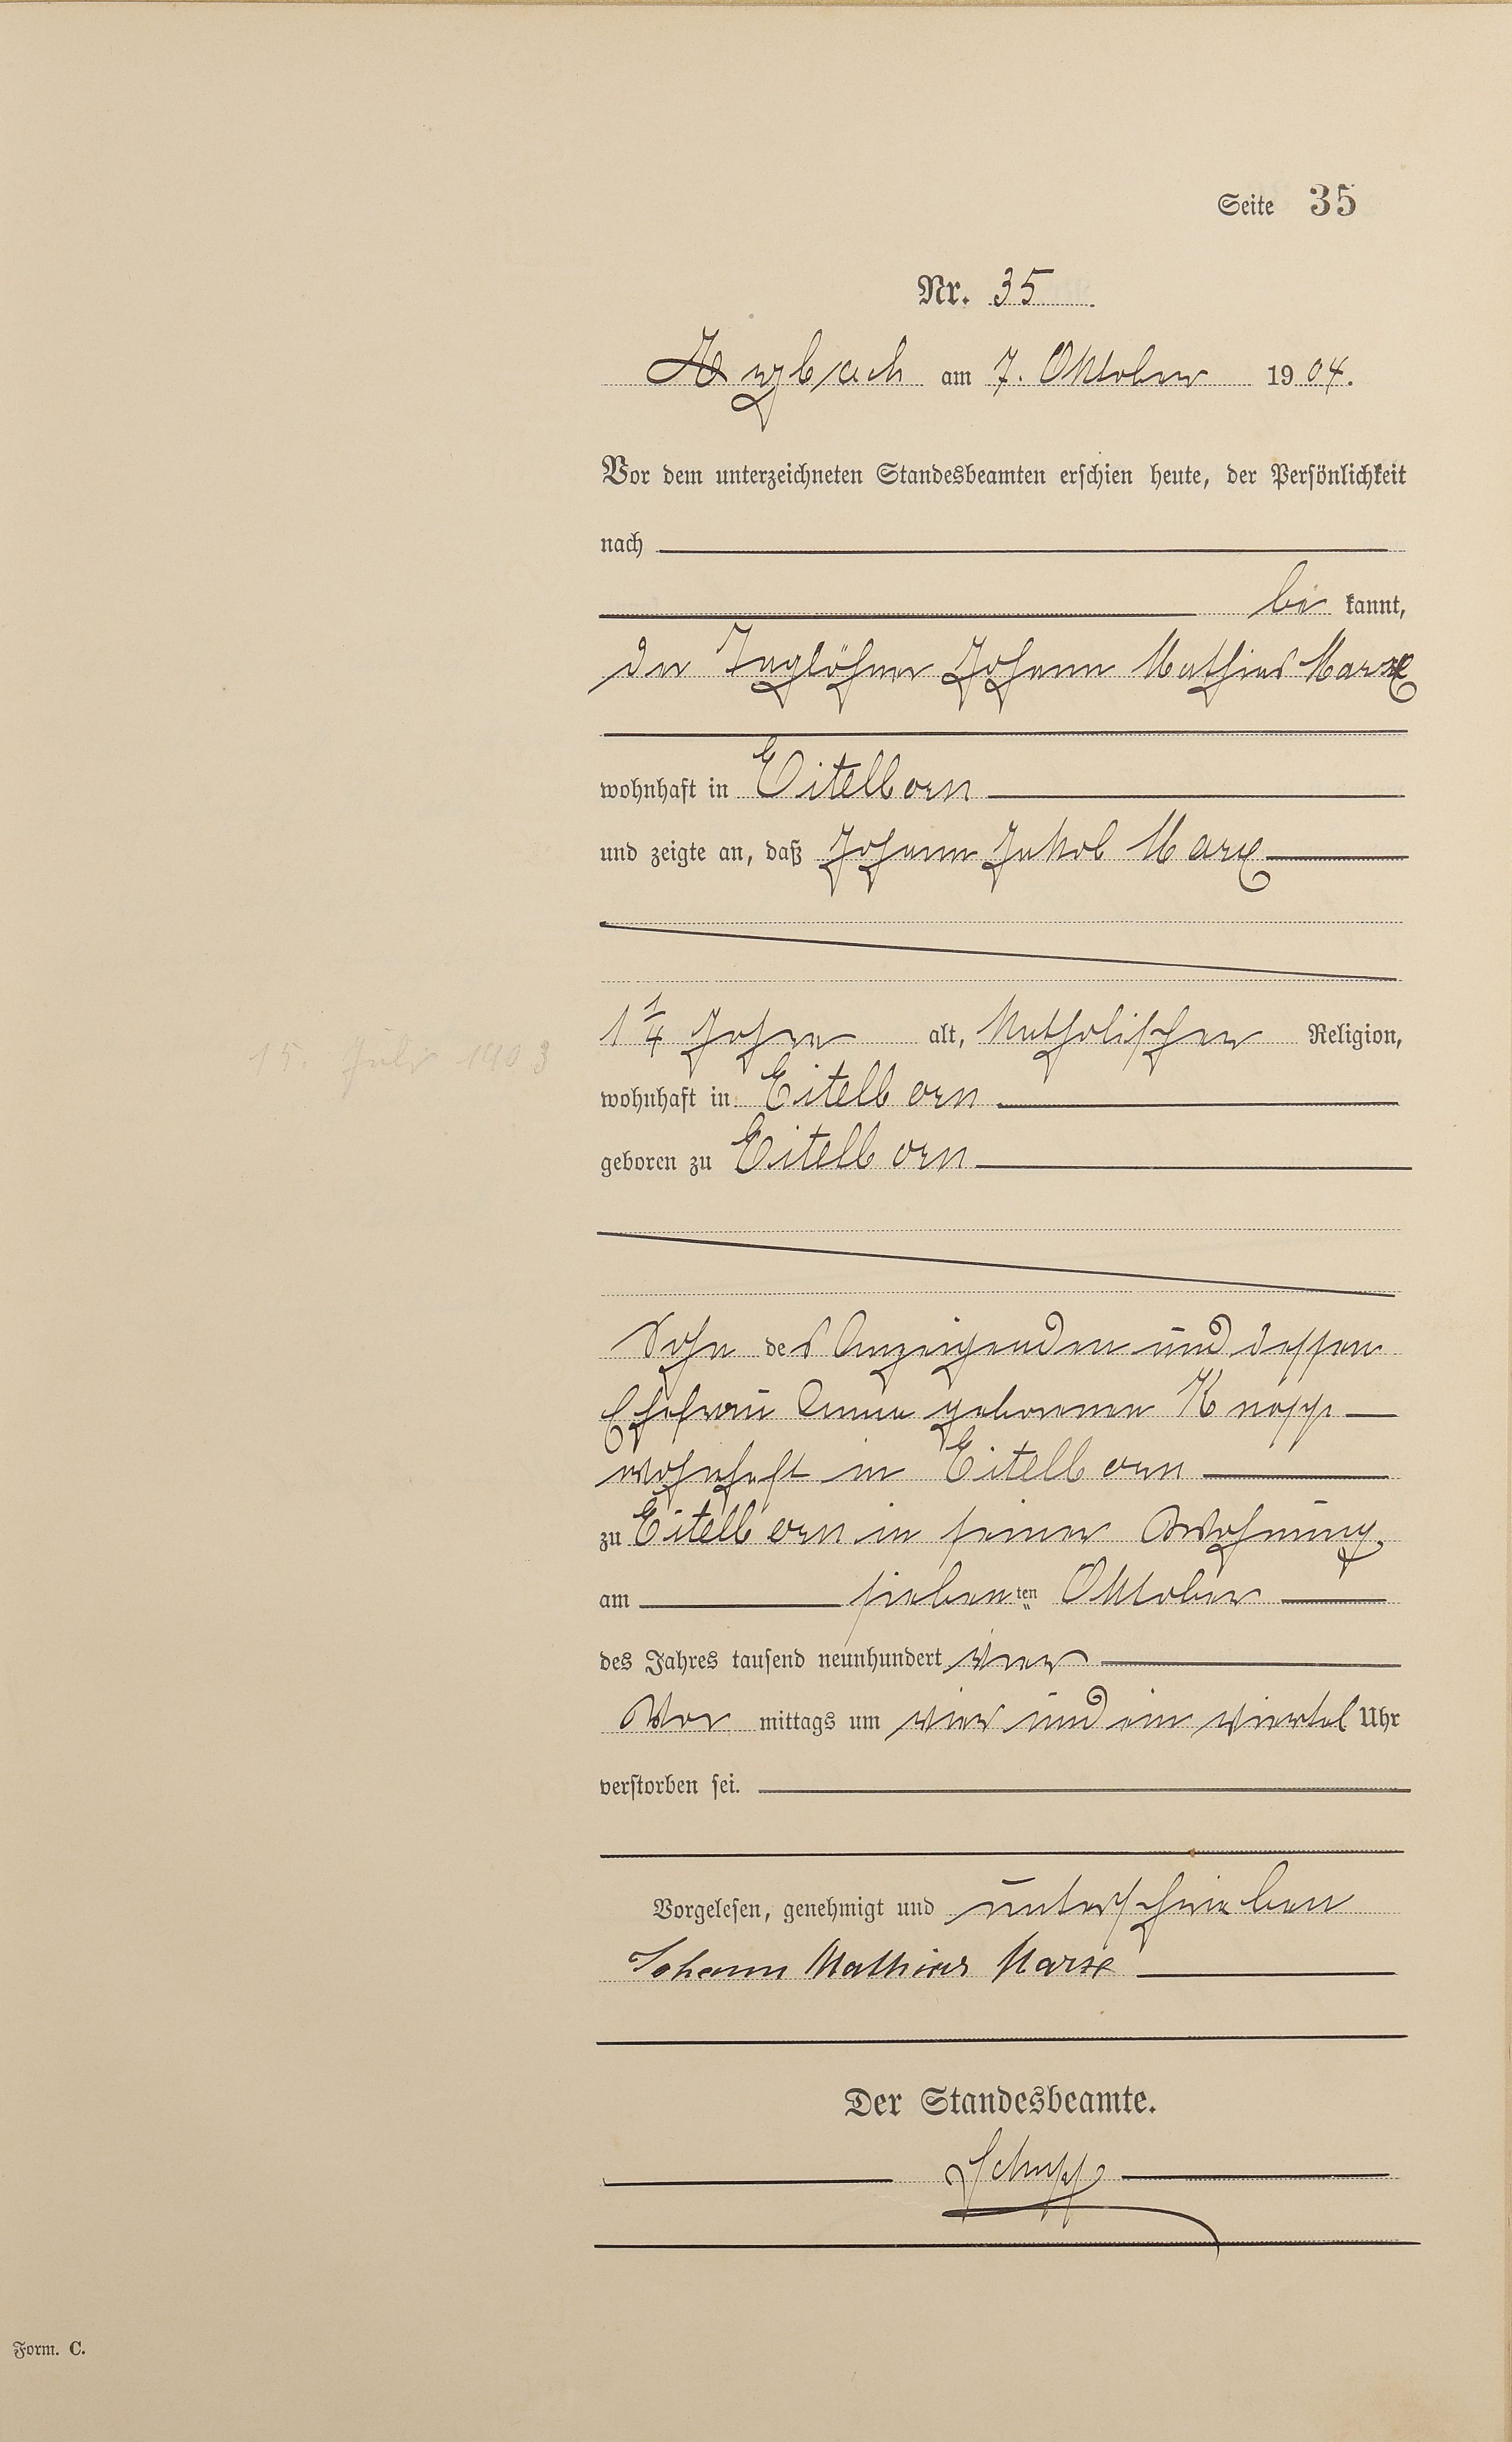 Seite 35
Nr. 35
Arzbach am 7. Oktober 1904.
Vor dem unterzeichneten Standesbeamten erschien heute, der Persönlichkeit
nach
be kannt,
der Taglöhner Johann Mathias Marx
wohnhaft in Eitelborn
und zeigte an, daß Johann Jakob Marx
1 1/4 Jahre alt, katholischer Religion,
15. Juli 1903
wohnhaft in Eitelborn
geboren zu Eitelborn
Sohn des Anzeigenden und dessen
Ehefrau Anna geborenen Knopp
wohnhaft in Eitelborn
zu Eitelborn in seiner Wohnung
am siebenten Oktober
des Jahres tausend neunhundert vier
Vor mittags um vier und ein viertel Uhr
verstorben sei.
Vorgelesen, genehmigt und unterschrieben
Johann Mathias Marx
Der Standesbeamte.
Schupp
Form. C.